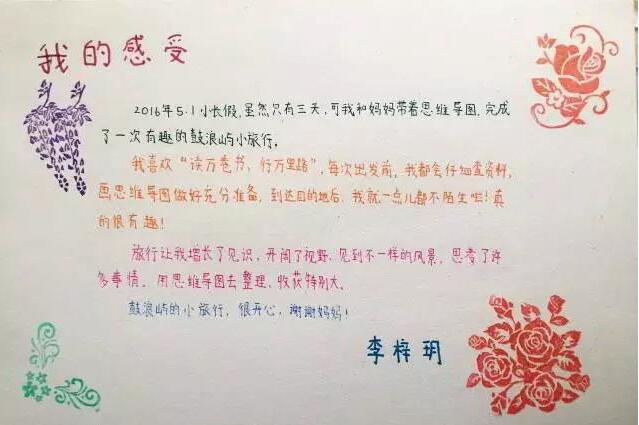 我的感受
2016年5.1小长假,虽然只有三天,可我和妈妈带着思维导图,完成
了一次有趣的鼓浪屿小旅行。
我喜欢“读万卷书、行万里路”,每次出发前,我都会仔细查资料,
画思维导图做好充分准备,到达目的地后,我就一点儿都不陌生啦!真
的很有趣!
旅行让我增长了见识,开阔了视野,见到不一样的风景,思考了许
多事情。用思维导图去整理,收获特别大。
鼓浪屿的小旅行,很开心,谢谢妈妈!
李梓玥